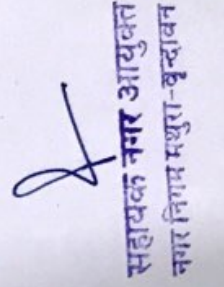 सहायक नगर आयुक्त
नगर निगम मथुरा-वृन्दावन